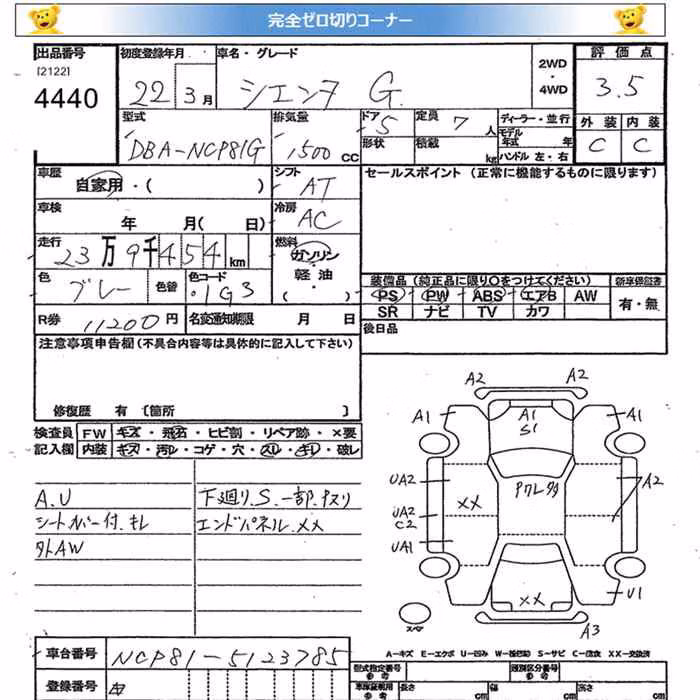 完全ゼロ切りコーナー
出品番号
[2122]
4440
初度登録年月
22 3月
車名・グレード
シエンタ G
2WD
・
4WD
評価点
3.5
外装 内装
C C
型式
DBA-NCP81G
排気量
1500 CC
ドア 5
形状
定員 7 人
積載 kg
ディーラー・並行
モデル年式 年
ハンドル 左・右
車歴
自家用・( )
シフト
AT
セールスポイント (正常に機能するものに限ります)
車検
年 月( 日)
冷房
AC
走行
23万9千454km
燃料
ガソリン
軽油
・( )
色
ブレー
色替
色コード
1G3
装備品 (純正品に限り○をつけてください)
新車保証書
PS PW ABS エアB AW
SR ナビ TV カワ
有・無
R券 11200円
名変通知期限 月 日
後日品
注意事項申告欄 (不具合内容等は具体的に記入して下さい)
修復歴 有 [箇所 ]
検査員
記入欄
FW キズ・飛石・ヒビ割・リペア跡・×要
内装 キズ・汚レ・コゲ・穴・スレ・キレ・破レ
A.U
シートカバー付.キレ
外AW
下廻り.S.一部.キズリ
エンドパネル.XX
A2 A2
A1 A1 A1
S1
UA2 XX A2
UA2
C2
UA1
XX U1
A3
スペア
A-キズ E-エクボ U-凹み W-補修跡 S-サビ C-腐食 XX-交換済
車台番号
NCP81-5123785
登録番号
型式指定番号
参考
類別区分番号
参考
車庫証明用
参考
長さ cm
幅 cm
高さ cm